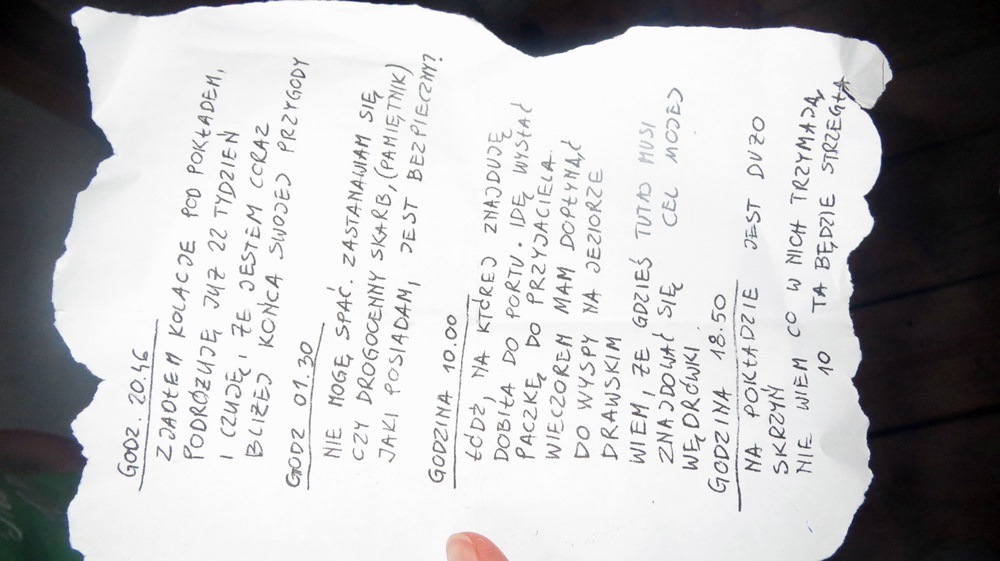 GODZ. 20.46
ZJADŁEM KOLACJE POD POKŁADEM,
PODRÓŻUJĘ JUŻ 22 TYDZIEŃ
I CZUJĘ, ŻE JESTEM CORAZ
BLIŻEJ KOŃCA SWOJEJ PRZYGODY
GODZ 01.30
NIE MOGĘ SPAĆ. ZASTANAWIAM SIĘ
CZY DROGOCENNY SKARB, (PAMIĘTNIK)
JAKI POSIADAM, JEST BEZPIECZNY?
GODZINA 10.00
ŁÓDŹ, NA KTÓREJ ZNAJDUJĘ
DOBIŁA DO PORTU. IDĘ WYSŁAĆ
PACZKĘ DO PRZYJACIELA.
WIECZOREM MAM DOPŁYNĄĆ
DO WYSPY NA JEZIORZE
DRAWSKIM
WIEM, ŻE GDZIEŚ TUTAJ MUSI
ZNAJDOWAĆ SIĘ CEL MOJEJ
WĘDRÓWKI
GODZINA 18.50
NA POKŁADZIE JEST DUŻO
SKRZYŃ
NIE WIEM CO W NICH TRZYMAJĄ,
10 TA BĘDZIE STRZEGŁA